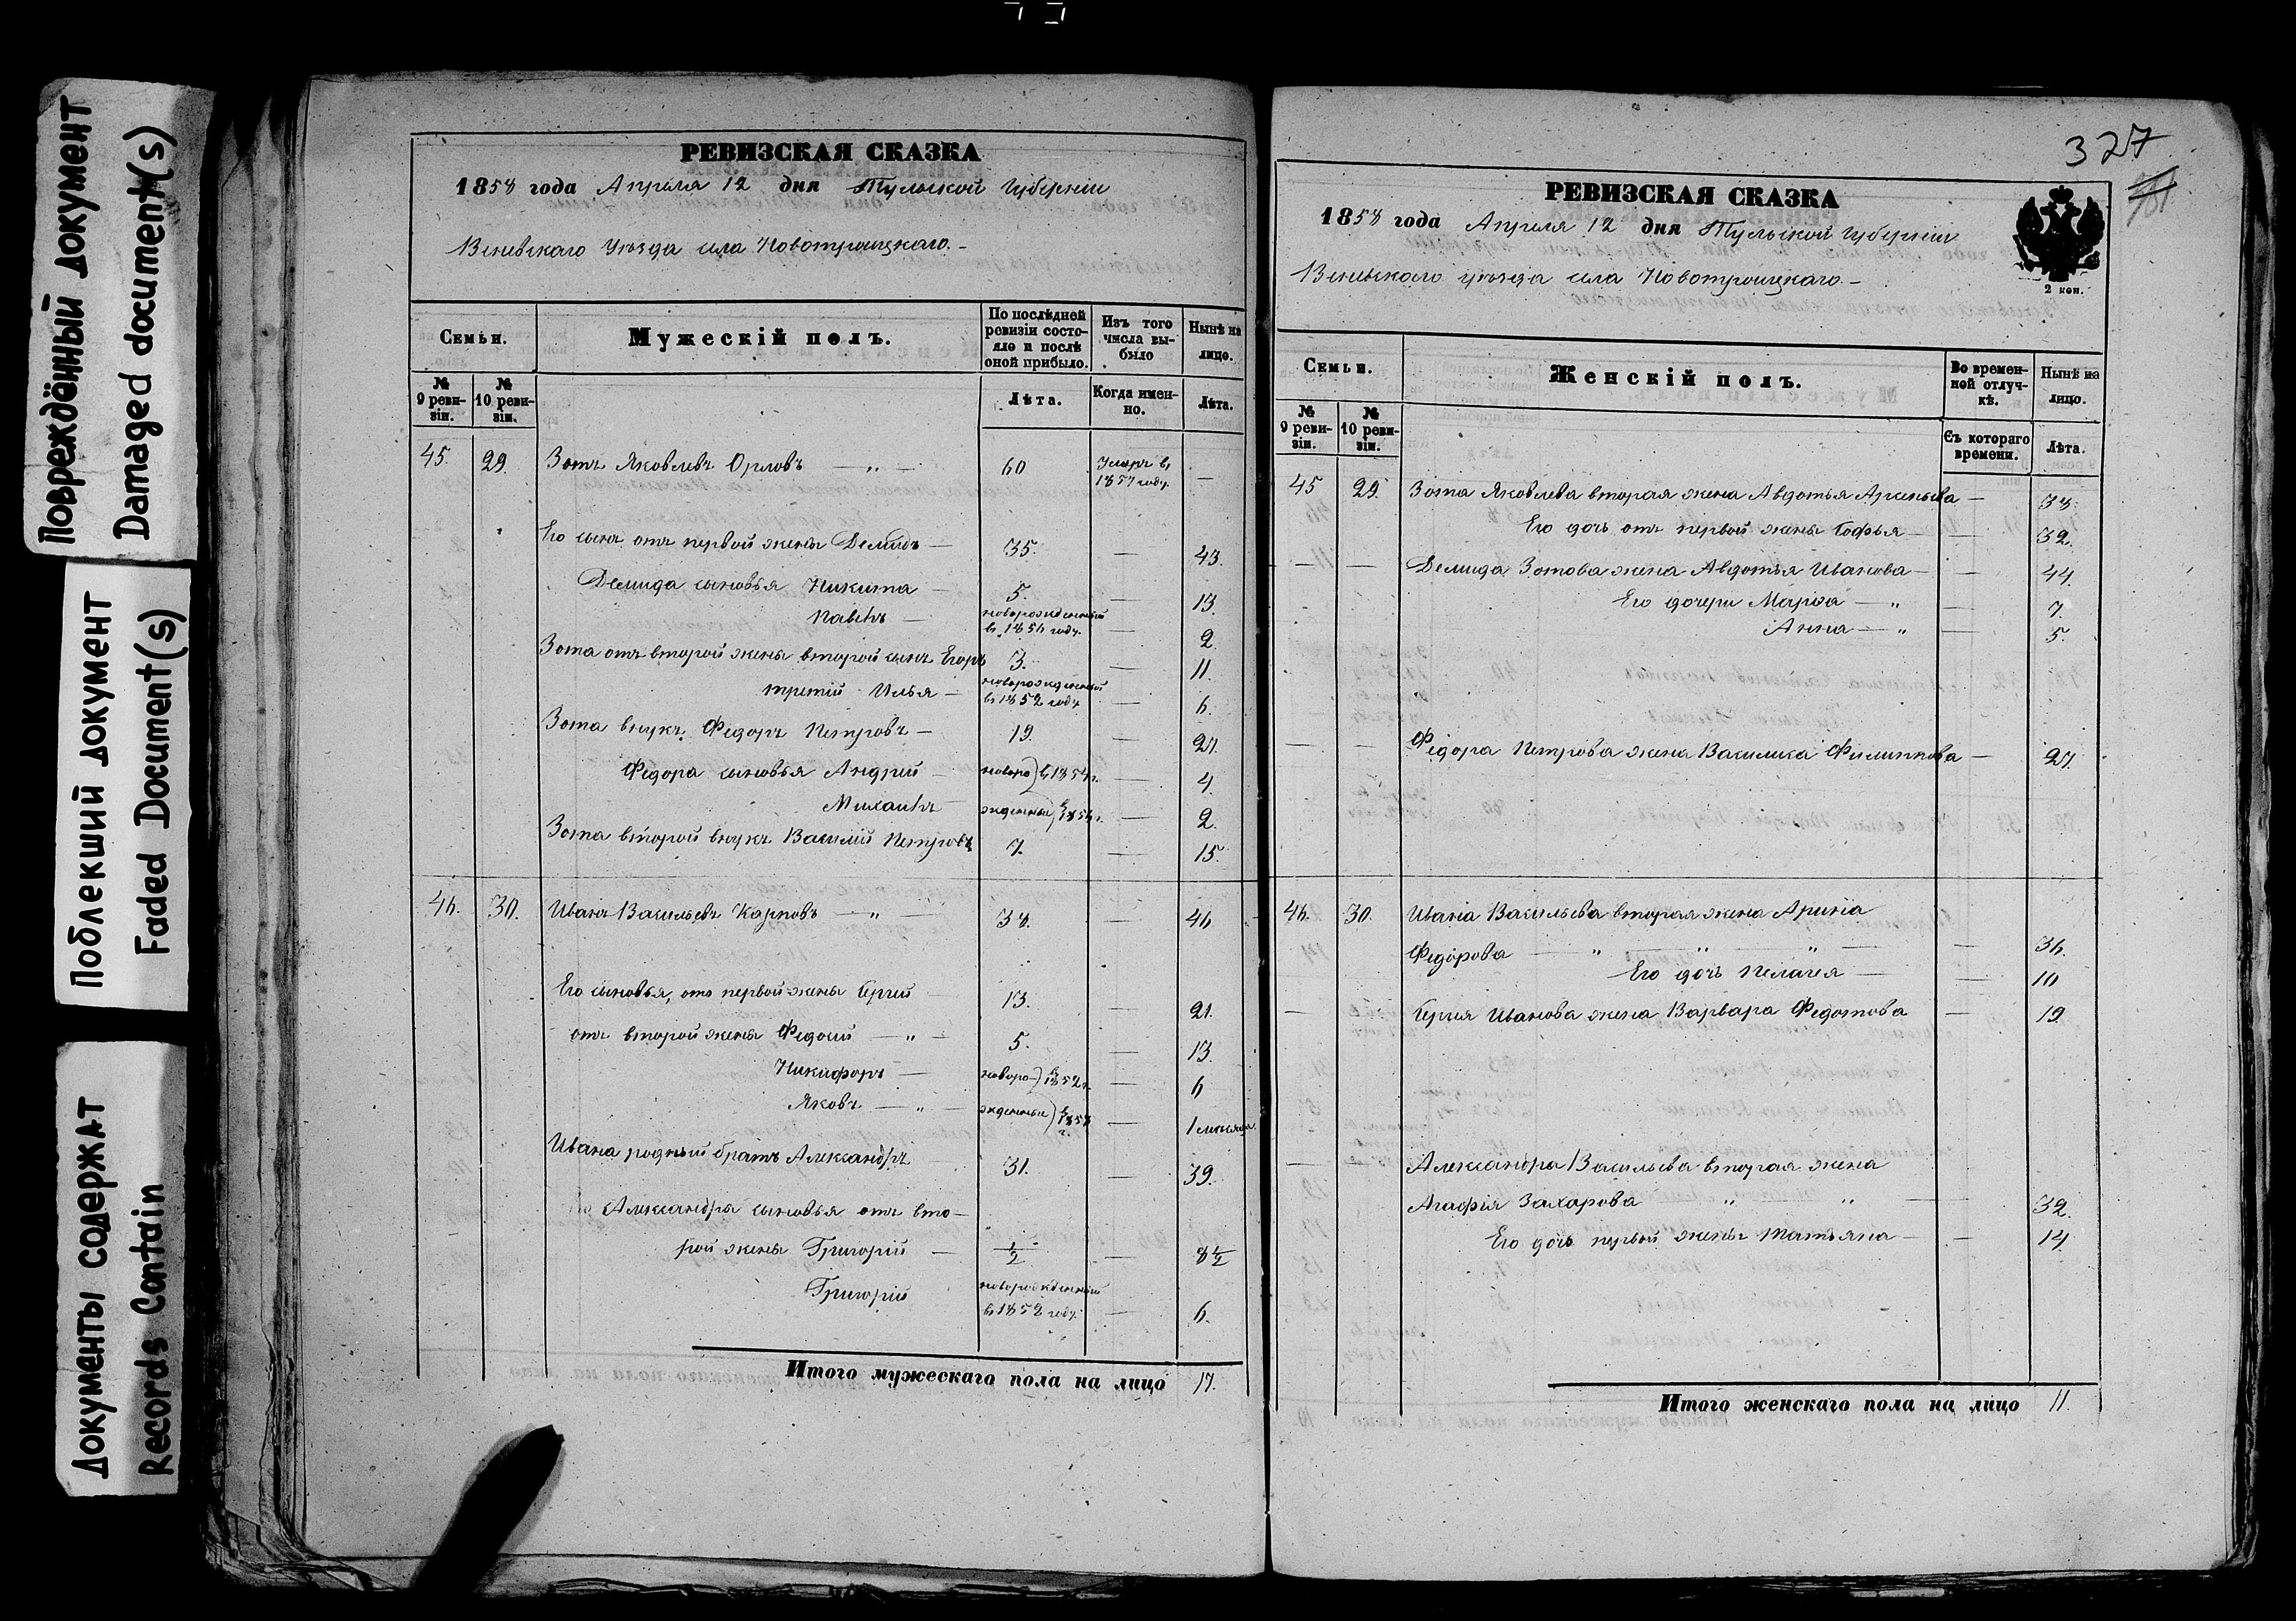 Повреждённый документ
Damaged document(s)
Поблекший документ
Faded Document(s)
Документы содержат
Records Contain
РЕВИЗСКАЯ СКАЗКА
1858 года Апреля 12 дня Тульской Губерніи
Веневскаго Уѣзда села Новотроицкаго.-
Семьи.
Мужескій полъ.
По послѣдней ревизіи состояло и послѣ оной прибыло.
Изъ того числа выбыло
Нынѣ на лицо.
№ 9 ревизіи.
№ 10 ревизіи.
Лѣта.
Когда именно.
Лѣта.
45. 29. Зотъ Яковлевъ Орловъ — „ — 60 Умеръ въ 1857 году. —
Его сынъ отъ первой жены Демидъ — 35. — 43.
Демида сыновья Никита — 5. — 13.
Павелъ — новорожденный въ 1856 году. — 2.
Зота отъ второй жены второй сынъ Егоръ 3. — 11.
третій Илья — новорожденный въ 1852 году — 6.
Зота внукъ Федоръ Петровъ — 19. — 27.
Федора сыновья Андрей — новоро) въ 1854 г. — 4.
Михаилъ — жденные) въ 1856 г. — 2.
Зота второй внукъ Василій Петровъ 7. — 15.
46. 30. Иванъ Васильевъ Карповъ — „ — 38. — 46
Его сыновья, отъ первой жены Сергей — 13. — 21.
отъ второй жены Федосий — „ — 5. — 13.
Никифоръ — новоро-) въ 1852 г. — 6
Яковъ — „ — жденные) въ 1858 г. — 1 месяца.
Ивана родный братъ Александръ 31. — 39.
Александра сыновья отъ вто-
рой жены Григорій — 1/2 — 8 1/2
Григорій новорожденный въ 1852 году. — 6.
Итого мужескаго пола на лицо 17.
327
РЕВИЗСКАЯ СКАЗКА
1858 года Апреля 12 дня Тульской Губерніи
Веневскаго уѣзда села Новотроицкаго.-
2 коп.
Семьи.
Женскій полъ.
Во временной отлучкѣ.
Нынѣ на лицо.
№ 9 ревизіи.
№ 10 ревизіи.
Съ котораго времени.
Лѣта.
45 29. Зота Яковлева вторая жена Авдотья Арсеньева — 38.
Его дочь отъ первой жены Софья — — 32.
— — Демида Зотова жена Авдотья Иванова — — 44.
Его дочери Марфа — „ — 7.
Анна — „ — 5.
— — Федора Петрова жена Василиса Филиппова — 27.
46. 30. Ивана Васильева вторая жена Арина
Федорова — „ — „ — „ — — 36.
Его дочь Пелагея — — 10
— Сергея Иванова жена Варвара Федотова — 19
— — Александра Васильева вторая жена
Агафія Захарова „ — „ — — 32.
Его дочь первой жены Татьяна — — 14.
Итого женскаго пола на лицо 11.